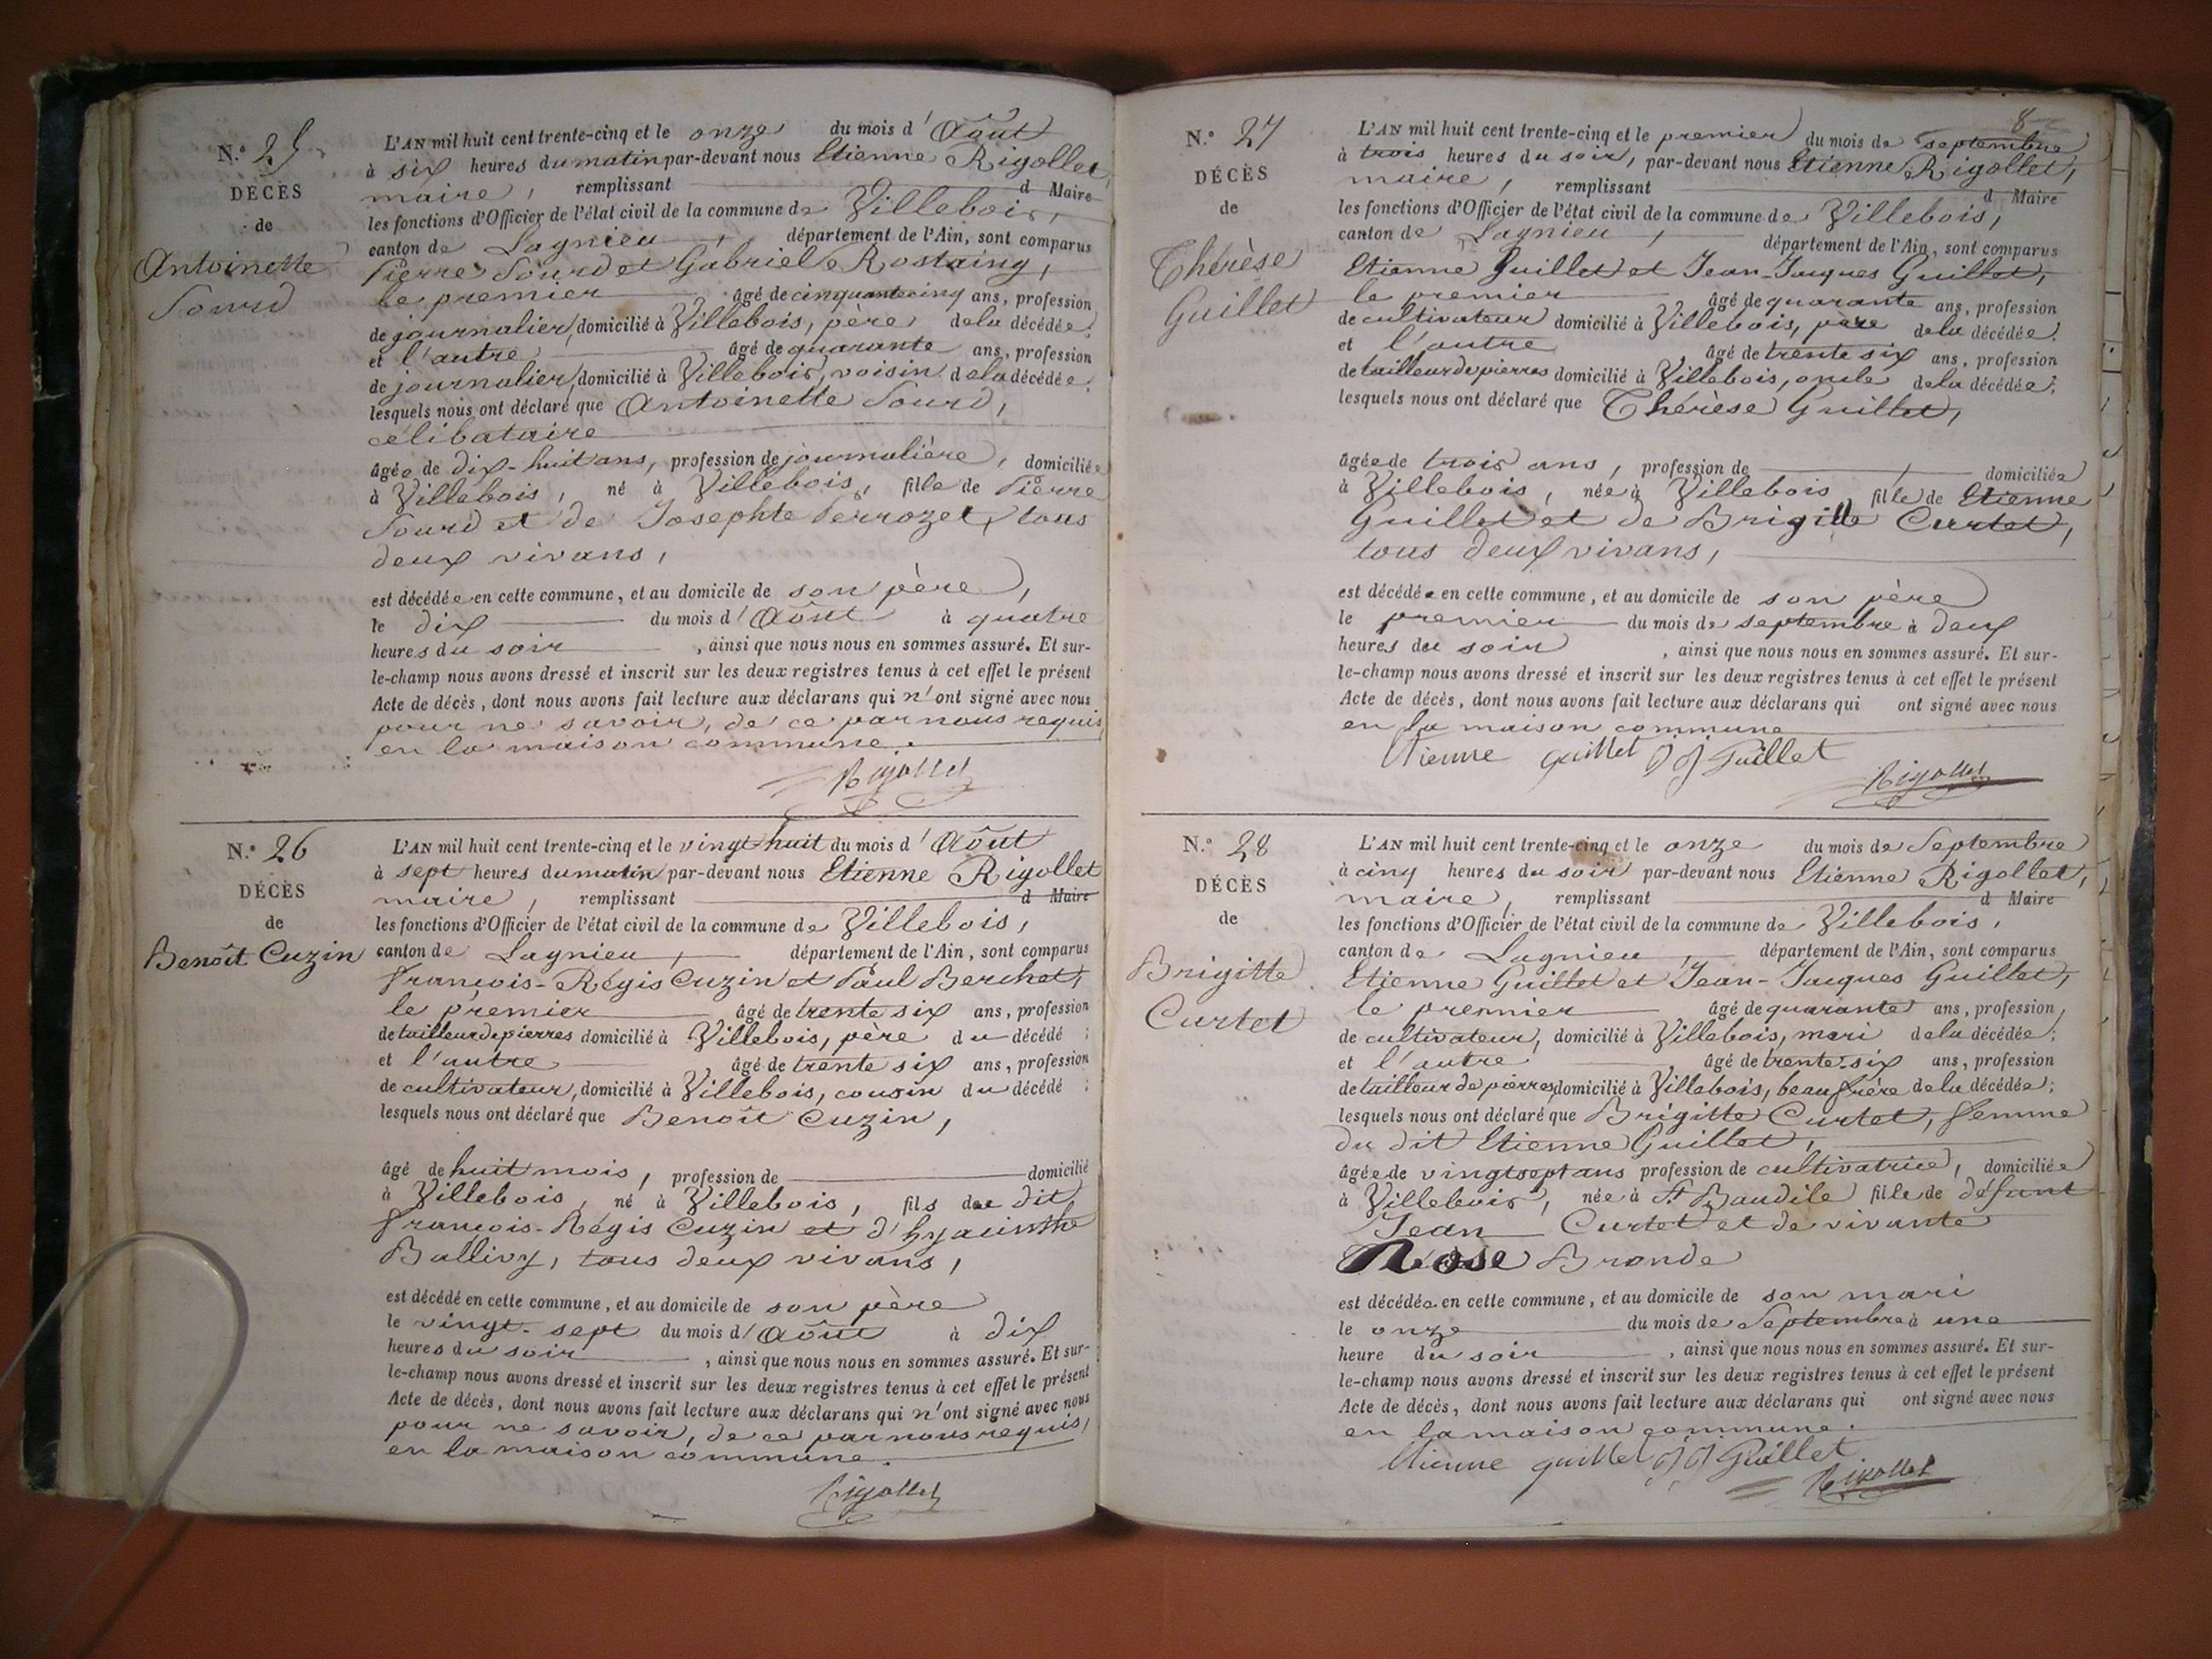 N.º 25
DÉCÈS
de
Antoinette
Sourd
L'AN mil huit cent trente-cinq et le onze du mois d'Août
à six heures du matin par-devant nous Etienne Rigollet,
maire, remplissant d Maire
les fonctions d'Officier de l'état civil de la commune de Villebois,
canton de Lagnieu, département de l'Ain, sont comparus
Pierre Sourd et Gabriel Rostaing,
le premier âgé de cinquante cinq ans, profession
de journalier, domicilié à Villebois, père de la décédée;
et l'autre âgé de quarante ans, profession
de journalier, domicilié à Villebois, voisin de la décédée;
lesquels nous ont déclaré que Antoinette Sourd,
célibataire
âgée de dix-huit ans, profession de journalière, domiciliée
à Villebois, né à Villebois, fille de Pierre
Sourd et de Josephte Perrozet, tous
deux vivans,
est décédée en cette commune, et au domicile de son père,
le dix du mois d'Août à quatre
heures du soir, ainsi que nous nous en sommes assuré. Et sur-
le-champ nous avons dressé et inscrit sur les deux registres tenus à cet effet le présent
Acte de décès, dont nous avons fait lecture aux déclarans qui n'ont signé avec nous
pour ne savoir, de ce par nous requis,
en la maison commune.
Rigollet
N.º 26
DÉCÈS
de
Benoît Cuzin
L'AN mil huit cent trente-cinq et le vingt huit du mois d'Août
à sept heures du matin par-devant nous Etienne Rigollet
maire, remplissant d Maire
les fonctions d'Officier de l'état civil de la commune de Villebois,
canton de Lagnieu, département de l'Ain, sont comparus
François-Régis Cuzin et Paul Berchet,
le premier âgé de trente six ans, profession
de tailleur de pierres domicilié à Villebois, père du décédé;
et l'autre âgé de trente six ans, profession
de cultivateur, domicilié à Villebois, cousin du décédé;
lesquels nous ont déclaré que Benoît Cuzin,
âgé de huit mois, profession de domicilié
à Villebois, né à Villebois, fils du dit
François-Régis Cuzin et d'hyacinthe
Ballivy, tous deux vivans,
est décédé en cette commune, et au domicile de son père
le vingt-sept du mois d'Août à dix
heures du soir, ainsi que nous nous en sommes assuré. Et sur-
le-champ nous avons dressé et inscrit sur les deux registres tenus à cet effet le présent
Acte de décès, dont nous avons fait lecture aux déclarans qui n'ont signé avec nous
pour ne savoir, de ce par nous requis,
en la maison commune.
Rigollet
8
N.º 27
DÉCÈS
de
Thérèse
Guillet
L'AN mil huit cent trente-cinq et le premier du mois de septembre
à trois heures du soir, par-devant nous Etienne Rigollet,
maire, remplissant d Maire
les fonctions d'Officier de l'état civil de la commune de Villebois,
canton de Lagnieu, département de l'Ain, sont comparus
Etienne Guillet et Jean-Jacques Guillet,
le premier âgé de quarante ans, profession
de cultivateur domicilié à Villebois, père de la décédée;
et l'autre âgé de trente six ans, profession
de tailleur de pierres domicilié à Villebois, oncle de la décédée;
lesquels nous ont déclaré que Thérèse Guillet,
âgée de trois ans, profession de domiciliée
à Villebois, née à Villebois, fille de Etienne
Guillet et de Brigitte Curtet,
tous deux vivans,
est décédée en cette commune, et au domicile de son père
le premier du mois de septembre à deux
heures du soir, ainsi que nous nous en sommes assuré. Et sur-
le-champ nous avons dressé et inscrit sur les deux registres tenus à cet effet le présent
Acte de décès, dont nous avons fait lecture aux déclarans qui ont signé avec nous
en la maison commune
Etienne guillet JJ Guillet
Rigollet
N.º 28
DÉCÈS
de
Brigitte
Curtet
L'AN mil huit cent trente-cinq et le onze du mois de Septembre
à cinq heures du soir par-devant nous Etienne Rigollet,
maire, remplissant d Maire
les fonctions d'Officier de l'état civil de la commune de Villebois,
canton de Lagnieu, département de l'Ain, sont comparus
Etienne Guillet et Jean-Jacques Guillet,
le premier âgé de quarante ans, profession
de cultivateur, domicilié à Villebois, mari de la décédée;
et l'autre âgé de trente-six ans, profession
de tailleur de pierres, domicilié à Villebois, beau frère de la décédée;
lesquels nous ont déclaré que Brigitte Curtet, femme
du dit Etienne Guillet,
âgée de vingt sept ans profession de cultivatrice, domiciliée
à Villebois, née à St Baudile fille de défunt
Jean Curtet et de vivante
Rose Bronde
est décédée en cette commune, et au domicile de son mari
le onze du mois de Septembre à une
heure du soir, ainsi que nous nous en sommes assuré. Et sur-
le-champ nous avons dressé et inscrit sur les deux registres tenus à cet effet le présent
Acte de décès, dont nous avons fait lecture aux déclarans qui ont signé avec nous
en la maison commune.
Etienne guillet JJ Guillet
Rigollet